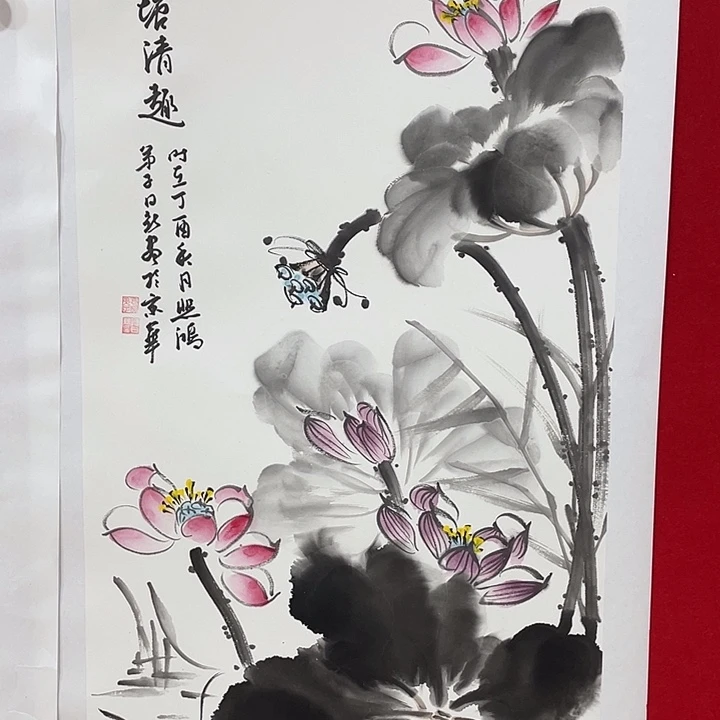 塘清趣
时在丁酉秋月照鸿
弟子日新画于京华